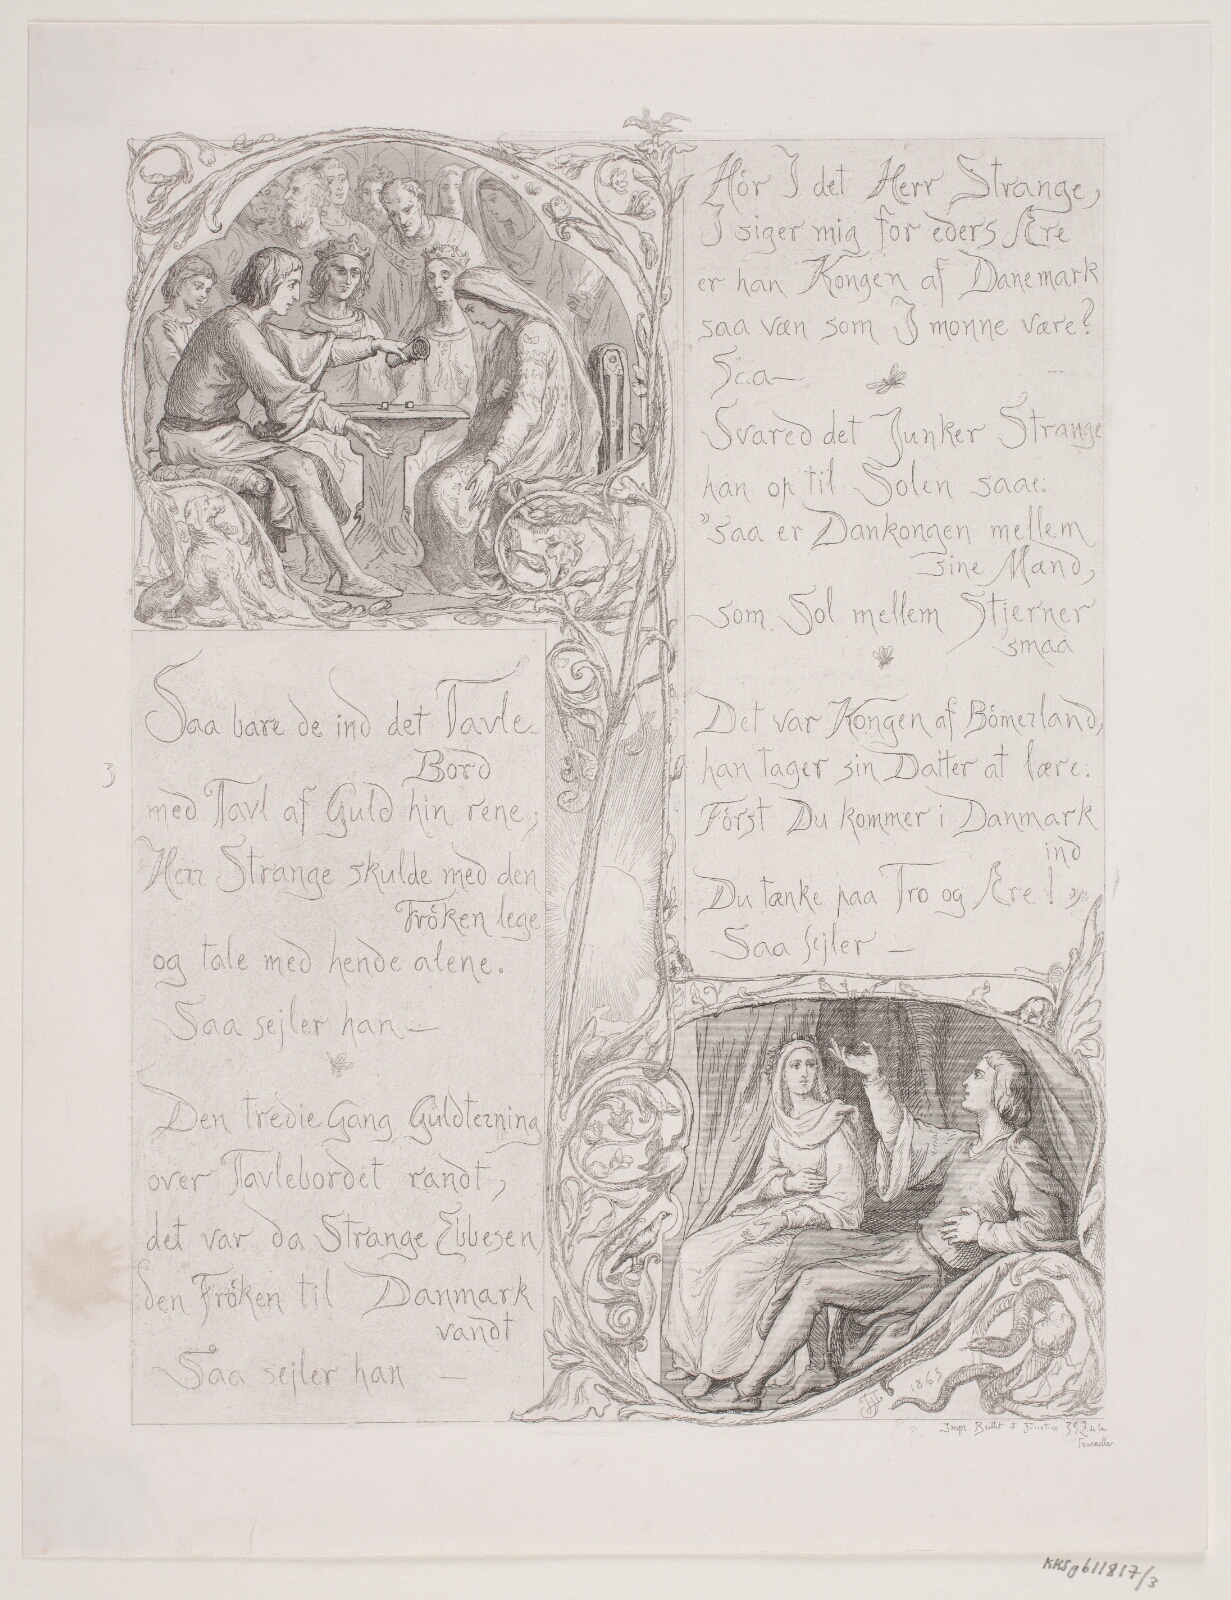 Saa bare de ind det Tavle-
Bord
med Tavl af Guld hin rene,
Herr Strange skulde med den
Fröken lege
og tale med hende alene.
Saa sejler han —
Den tredie Gang Guldterning
over Tavlebordet randt,
det var da Strange Ebbesen
den Fröken til Danmark
vandt
Saa sejler han —
3
Hör I det Herr Strange,
I siger mig for eders Ære
er han Kongen af Danemark
saa væn som I monne være?
Saa—
Svared det Junker Strange
han op til Solen saae:
"saa er Dankongen mellem
sine Mænd,
som Sol mellem Stjerner
smaa
Det var Kongen af Bömerland,
han tager sin Datter at lære:
Först Du kommer i Danmark
ind
Du tænke paa Tro og Ære!"
Saa sejler —
1863
Impr
KKSgb11817/3